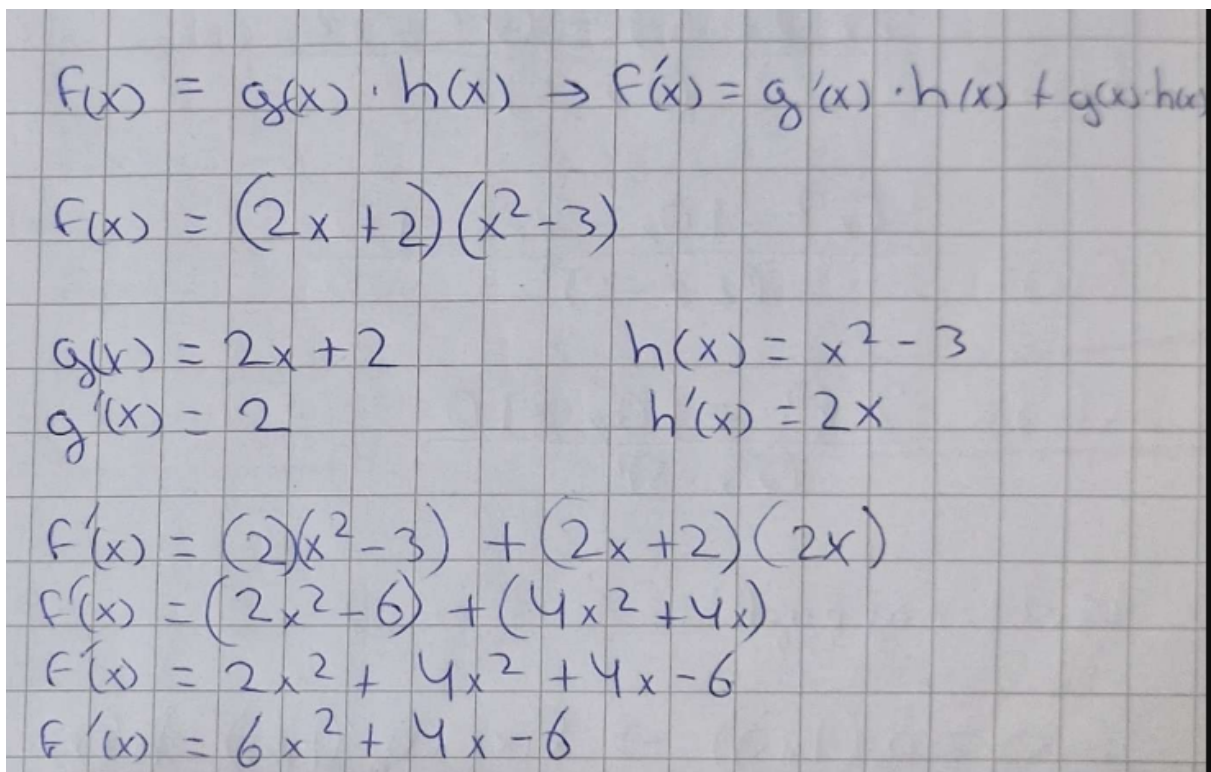 f(x) = g(x) · h(x) → f'(x) = g'(x) · h(x) + g(x)·h(x)
f(x) = (2x + 2)(x² - 3)
g(x) = 2x + 2 h(x) = x² - 3
g'(x) = 2 h'(x) = 2x
f'(x) = (2)(x² - 3) + (2x + 2)(2x)
f'(x) = (2x² - 6) + (4x² + 4x)
f'(x) = 2x² + 4x² + 4x - 6
f'(x) = 6x² + 4x - 6